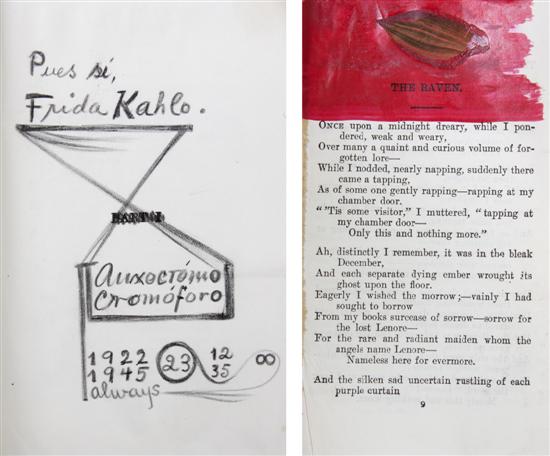 Pues sí,
Frida Kahlo.
Auxocrómo
Cromóforo
1922
1945
23
12
35
∞
always
THE RAVEN.
ONCE upon a midnight dreary, while I pon-
dered, weak and weary,
Over many a quaint and curious volume of for-
gotten lore—
While I nodded, nearly napping, suddenly there
came a tapping,
As of some one gently rapping—rapping at my
chamber door.
"'Tis some visitor," I muttered, "tapping at
my chamber door—
Only this and nothing more."
Ah, distinctly I remember, it was in the bleak
December,
And each separate dying ember wrought its
ghost upon the floor.
Eagerly I wished the morrow;—vainly I had
sought to borrow
From my books surcease of sorrow—sorrow for
the lost Lenore—
For the rare and radiant maiden whom the
angels name Lenore—
Nameless here for evermore.
And the silken sad uncertain rustling of each
purple curtain
9